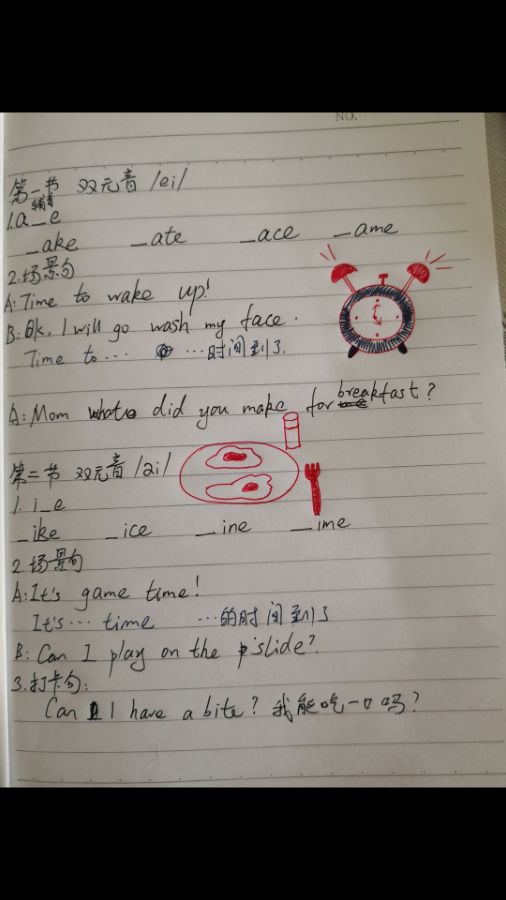 NO.
第一节 双元音 /ei/
1.a_e
辅音
_ake _ate _ace _ame
2.场景句
A:Time to wake up!
B:Ok, I will go wash my face.
Time to... ...时间到了.
A:Mom what did you make for breakfast?
第二节 双元音 /ai/
1. i_e
_ike _ice _ine _ime
2.场景句
A:It's game time!
It's... time ...的时间到了
B: Can I play on the slide?
3.打卡句:
Can I have a bite? 我能吃一口吗?